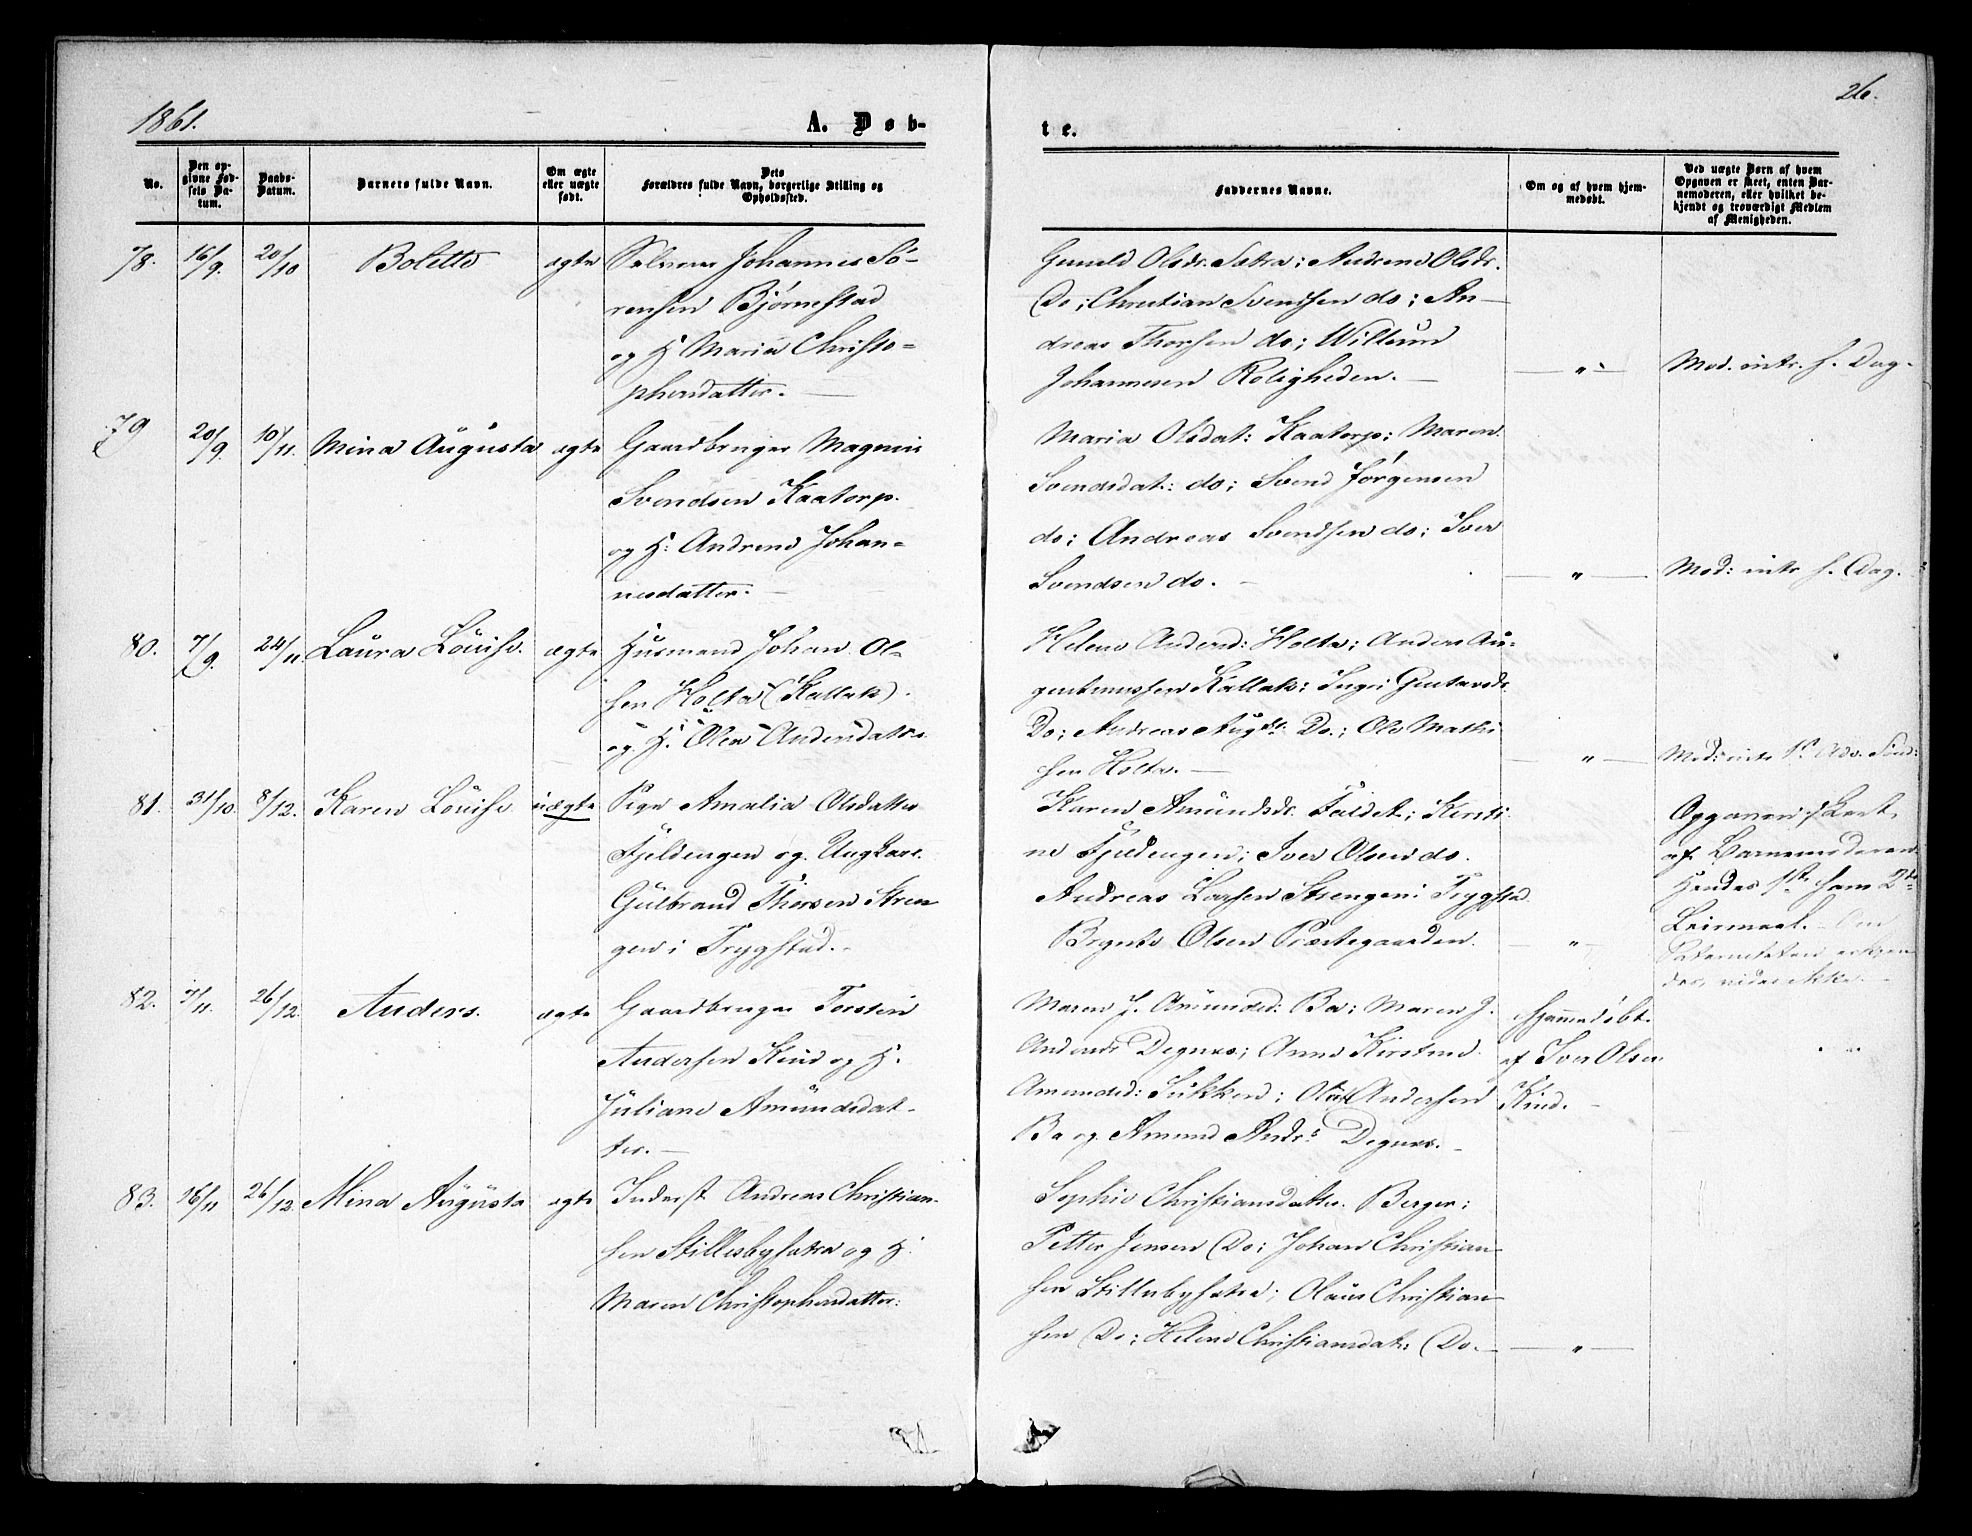 1861.
A. Døb-
te.
26.
No.
Den op-
givne Fød-
sels Da-
tum.
Daabs-
Datum.
Barnets fulde Navn.
Om ægte
eller uægte
født.
Dets
Forældres fulde Navn, borgerlige Stilling og
Opholdssted.
Faddernes Navne.
Om og af hvem hjem-
medøbt.
Ved uægte Børn af hvem
Opgaven er skeet, enten Bar-
nemoderen, eller hvilket be-
kjendt og troværdigt Medlem
af Menigheden.
78. 16/9. 20/10 Bolette ægte Selveier Johannes Sö-
rensen Bjørnestad
og H Maria Christo-
phersdatter.
Gunild Olsdr. Sætra; Andrine Olsdr.
Do; Christian Svendsen do; An-
dreas Thorsen do; Willum
Johannesen Roligheden. — " — Mod. intr. s. Dag.
79 20/9. 10/11. Mina Augusta ægte Gaardbruger Magnus
Svendsen Kaatorp.
og H: Andrine Johan-
nesdatter.
Maria Olsdat: Kaatorp; Maren
Svendsdat: do; Svend Jørgensen
do; Andreas Svendsen do; Iver
Svendsen do. — " — Mod: intr s. Dag.
80. 7/9. 24/11 Laura Louise. ægte Husmand Johan Ol-
sen Holta (Kallak).
og H. Olea Andersdatter
Helene Andersd: Holta; Anders Au-
gentinussen Kallak; Inger Gustavsdr.
Do; Andreas Augst. Do.; Ole Mathi
sen Holta. — " — Mod: intr 1st Adv. Sönd:
81. 31/10. 8/12. Karen Louise uægte Pige Amalia Olsdatter
Fjeldengen og Ungkarl
Gulbrand Thorsen Stren
gen i Trygstad.
Karen Amundsdr. Faldet; Kirsti
ne Fjeldengen; Iver Olsen do.
Andreas Larsen Strengen i Trygstad
Brynte Olsen Præstegaarden. — " —
Opgaven skeet
af Barnemoderen
Hendes 1ste hans 2det
Leiermaal. Om
Paterniteten erkjen
des, vides ikke.
82. 7/11. 26/12 Anders. ægte Gaardbruger Torsten
Andersen Kind og H.
Juliane Amundsdat-
ter.
Maren J. Amundsd: Ba; Maren J.
Andersdr Degnæs; Anne Kirstine
Amundsd: Sukken; Olaf Andersen
Ba og Amund Andrs Degnæs.
Hjemmedøbt
af Iver Olsen
Kind.
83. 26/11 26/12. Mina Augusta ægte Inderst Andreas Christian-
sen Stillesbysætra og H.
Maren Christophersdatter.
Sophie Christiansdatter. Berger;
Petter Jensen Do; Johan Christian-
sen Stillesbysætra; Olaus Christian-
sen Do; Helene Christiansdat: Do. — " —